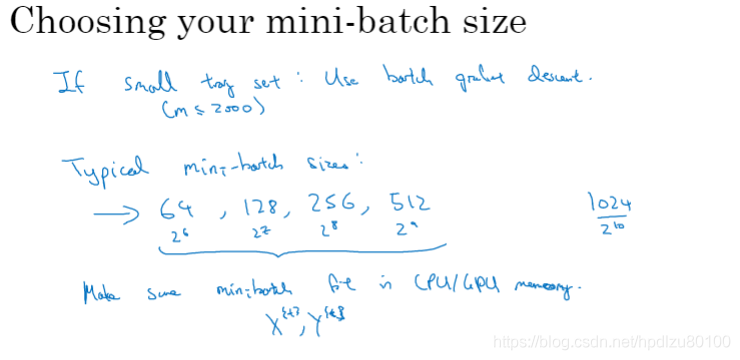 Choosing your mini-batch size
If small trag set : Use batch gradient descent.
(m ≤ 2000)
Typical mini-batch sizes:
→ 64 , 128, 256, 512 1024
2^6 2^7 2^8 2^9 2^10
Make sure mini-batch fit in CPU/GPU memory.
X^{t}, Y^{t}
https://blog.csdn.net/hpdlzu80100